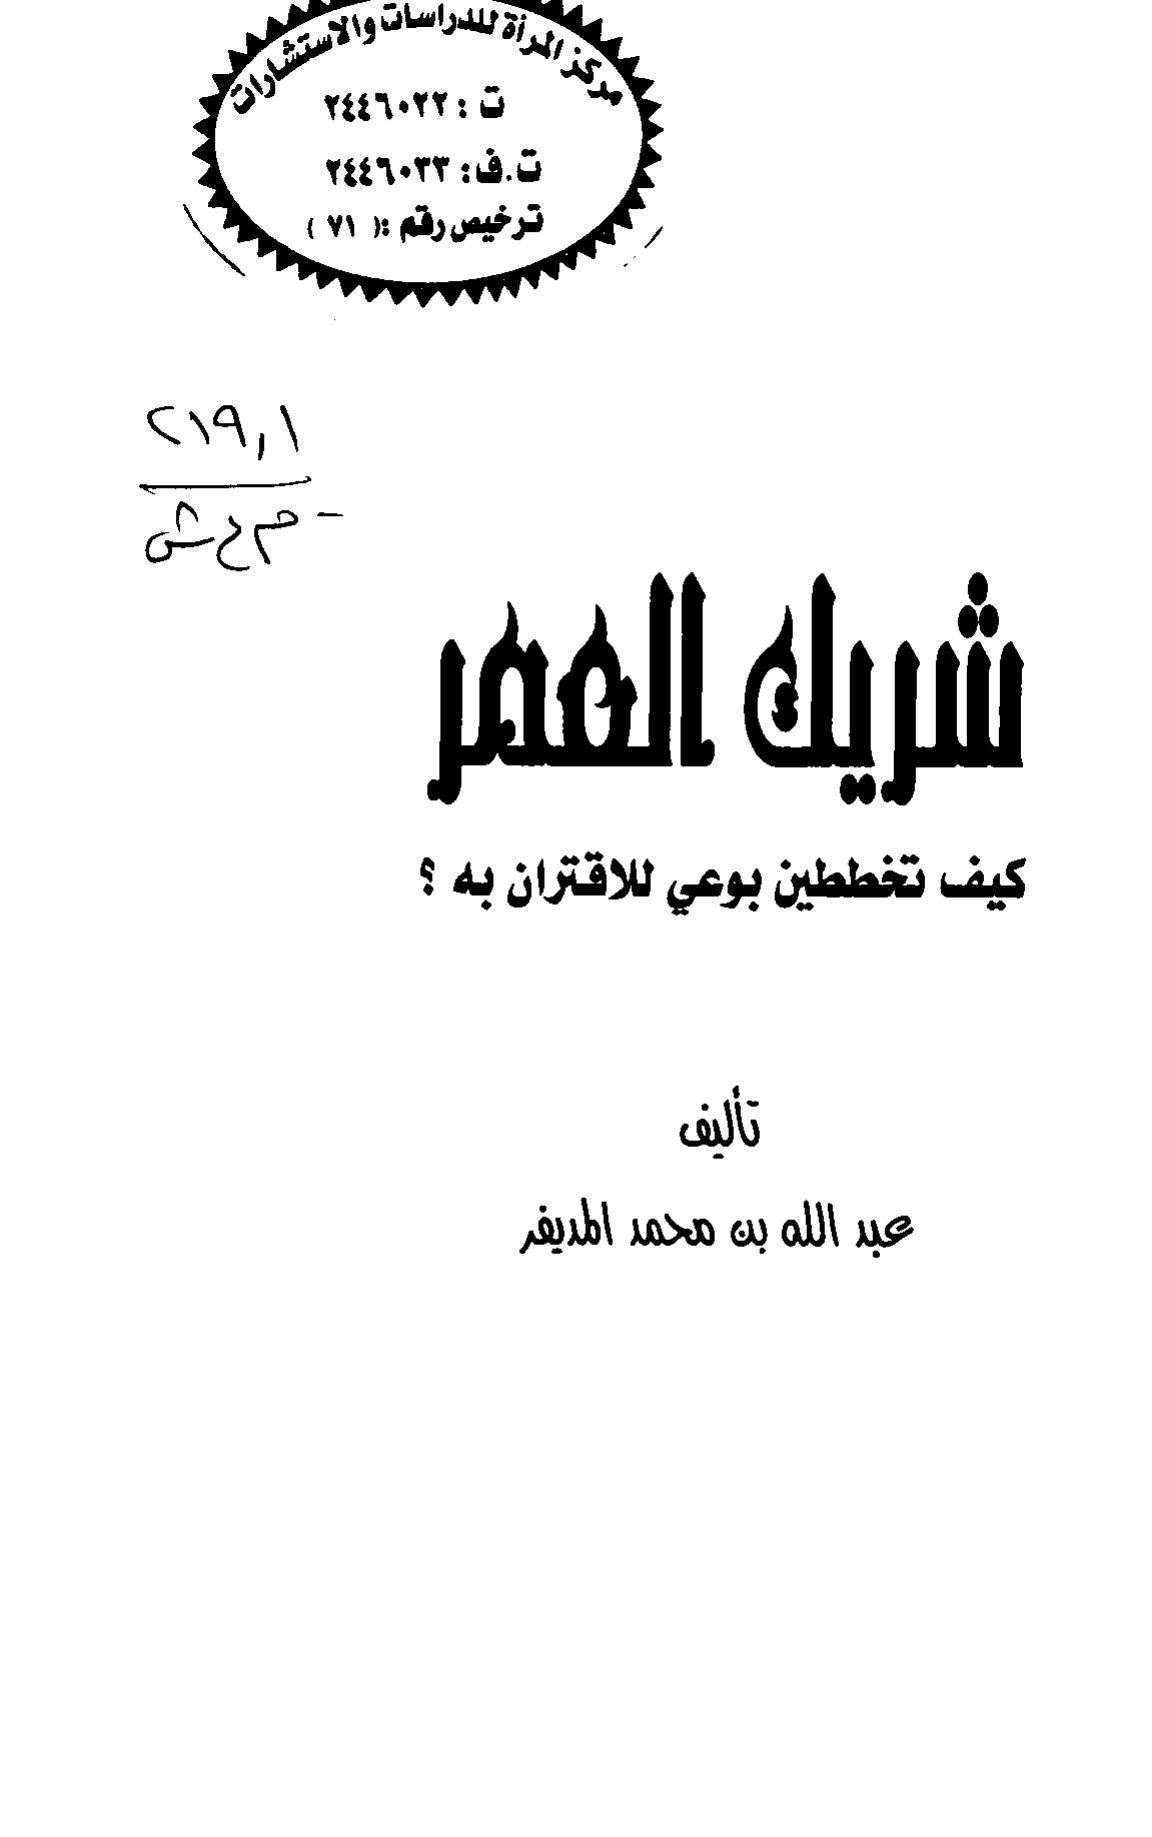 مركز المرأة للدراسات والاستشارات
ت : ٢٤٤٦٠٢٢
ت.ف: ٢٤٤٦٠٣٣
ترخيص رقم :( ٧١ )
٢١٩,١
شريك العمر
كيف تخططين بوعي للاقتران به ؟
تأليف
عبد الله بن محمد المديفر